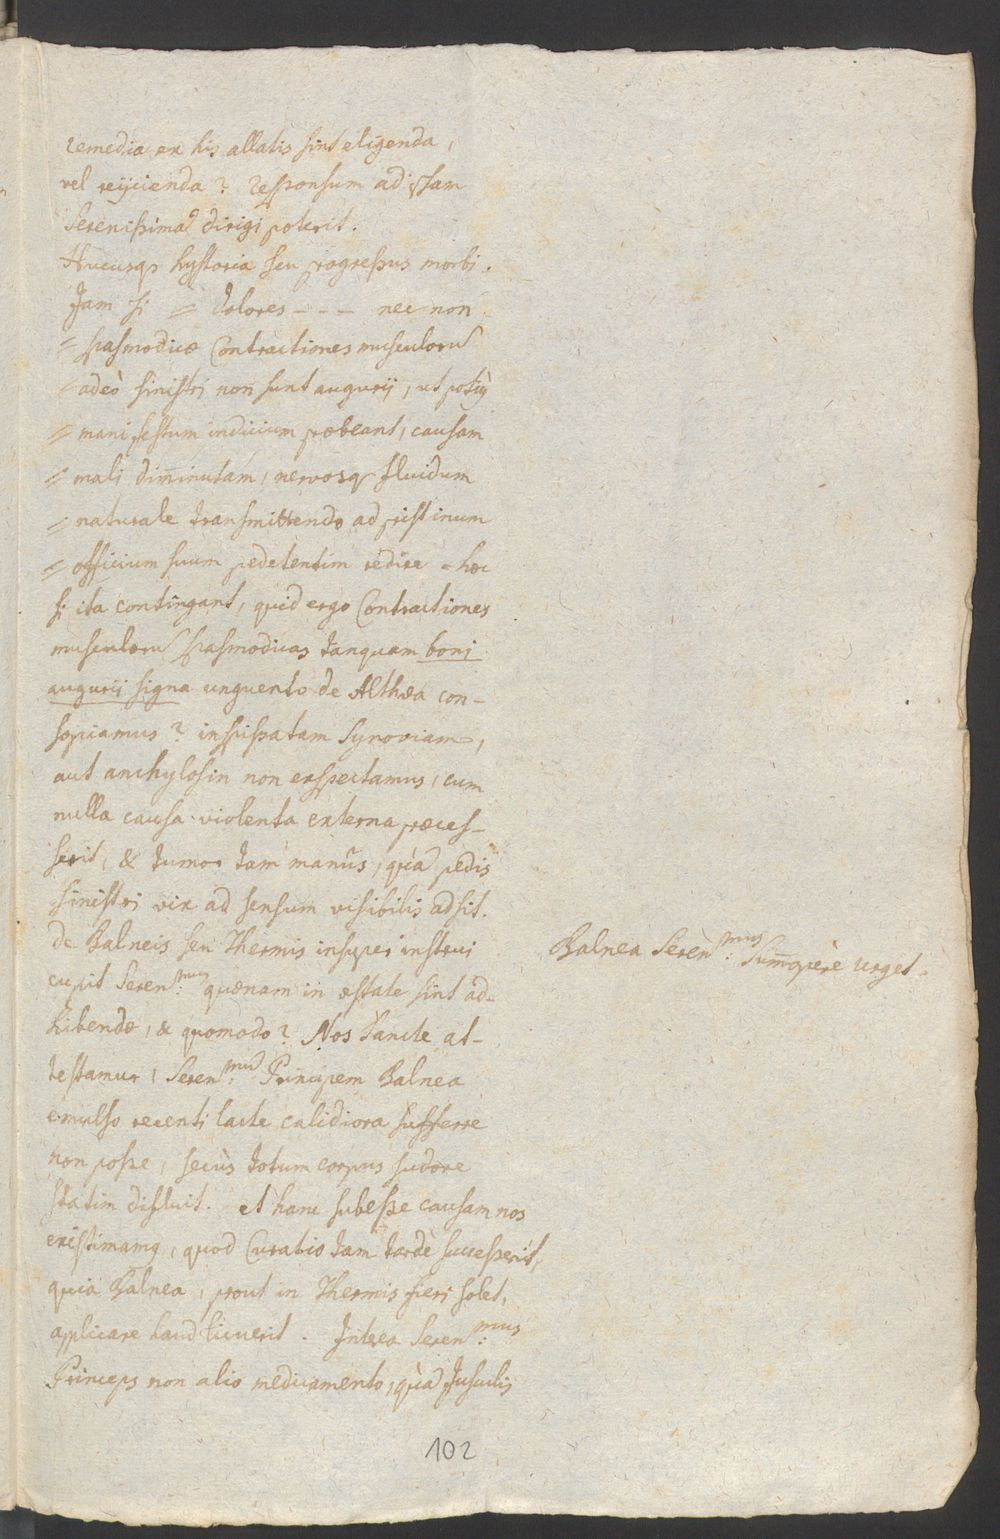 remedia ex his allatis sint eligenda,
vel reijcienda? responsum ad ipsam
Serenißimã dirigi poterit.
Hucusq₃ hystoria seu progreßus morbi.
Jam si = dolores - - - nec non
= spasmodicæ Contractiones musculorũ
= adeò sinistri non sunt augurij, ut potiꝰ
= manifestum indicium præbeant, causam
= mali diminutam, nervosq₃ fluidum
= naturale transmittendo ad pristinum
= officium suum pedetentim redire = hæc
si ita contingant, quid ergo Contractiones
musculorũ spasmodicas tanquam boni
augurij signa unguento de Althæa con-
sopiamus? inspißatam Synoviam,
aut anchylosin non exspectamus, cum
nulla causa violenta externa præces-
serit, & tumor tam manûs, quà pedis
sinistri vix ad sensum visibilis adsit.
de Balneis seu Thermis insuper instrui
cupit Seren:mus quænam in æstate sint ad-
hibendæ, & quomodo? Nos sancte at-
testamur, Seren:mũ Principem Balnea
emulso recenti lacte calidiora sufferre
non poße, secùs totum corpus sudore
statim diffluit. et hanc subeße causam nos
existimamꝰ, quod Curatio tam tardè succeßerit,
quia Balnea, prout in Thermis fieri solet,
applicare haud licuerit. Interea Seren:mus
Princeps non alio medicamento, quà Jusculis
Balnea Seren:mus summopere urget.
102